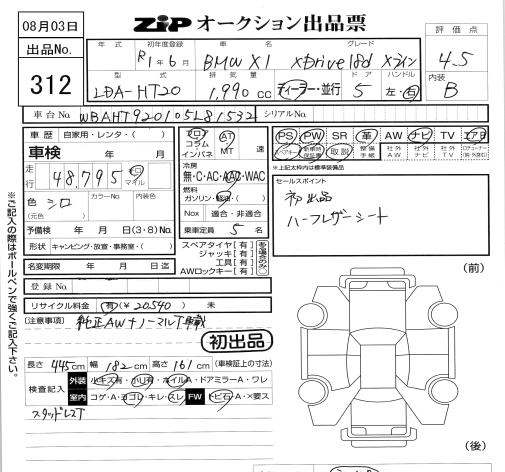 08月03日
ZiP オークション出品票
出品No.
312
年 式 初年度登録 車 名 グレード
R1年6月 BMW X1 xDrive18d xライン
型 式 排 気 量 ドア ハンドル
LDA-HT20 1,990 cc ディーラー・並行 5 左・右
評 価 点
4.5
内装
B
車 台 No. WBAHT920105L81532 シリアルNo.
車 歴 自家用・レンタ・( )
車検 年 月
走行 48,795 キロ マイル
色 シロ カラーNo. 内装色
(元色)
予備検 年 月 日(3・8)No.
形状 キャンピング・放宣・事務室・( )
名変期限 年 月 日迄
登 録 No.
リサイクル料金 有(¥20540) 未
フロア コラム インパネ AT MT 速
冷房
無・C・AC・AAC・WAC
燃料
ガソリン・軽油・( )
Nox 適合・非適合
乗車定員 5 名
スペアタイヤ[有]
ジャッキ[有]
工具[有]
AWロックキー[有]
PS PW SR 革 AW ナビ TV エアB
スペアキー 取説 整備手帳 社外AW 社外ナビ 社外TV
※上記太枠内は標準装備品
セールスポイント
初出品
ハーフレザーシート
[注意事項] 純正AW+ノーマルT車載
初出品
長さ 445cm 幅 182cm 高さ 161cm (車検証上の寸法)
検査記入 外装 小キズ有・小凹有・ホイルA・ドアミラーA・ワレ
室内 コゲ・A・ヨゴレ・キレ・スレ FW トビ石・A・×要ス
スタッドレスT
(前)
(後)
※ご記入の際はボールペンで強くご記入下さい。